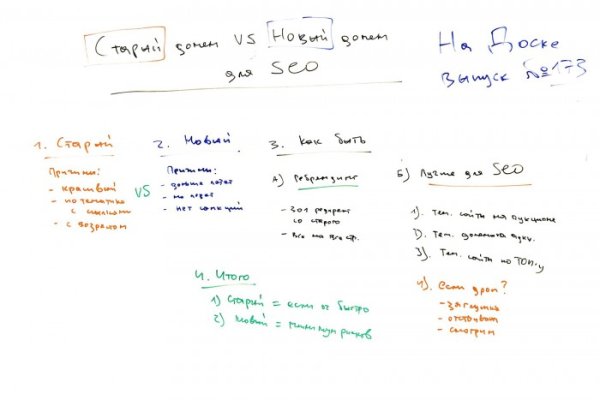 Старый домен VS Новый домен
для SEO
На Доске
выпуск №173
1. Старый
Причины:
- красивый
- по тематике
с ссылками
- с возрастом
VS
2. Новый
Причины:
- не
- нет санкций
3. Как быть
А) Ребрендинг
- 301 редирект
со старого
- Все на
Б) Лучше для SEO
1). Тем. сайты на аукционе
2). Тем. домены аукц.
3). Тем. сайты по ТОП-у
4). если дроп?
- заглушка
- отстойник
- смотрим
4. Итого
1) Старый = если ок быстро
2) Новый = минимум рисков